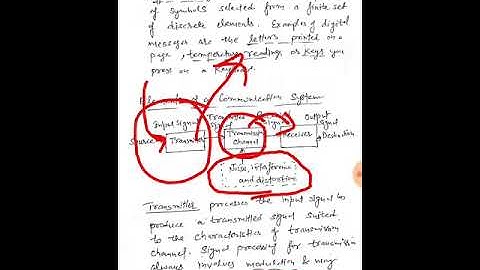 of symbols selected from a finite set
of discrete elements. Examples of digital
messages are the letters printed on a
page, temperature readings or keys you
press on a keyboard.
Elements of a Communication System
Input Signal
Signal
Output
Signal
Source
Transmitter
Transmission
Channel
Receiver
Destination
Noise, interference
and distortion
Transmitter processes the input signal to
produce a transmitted signal suited
to the characteristics of transmission
channel. Signal processing for transmission
always involves modulation & may